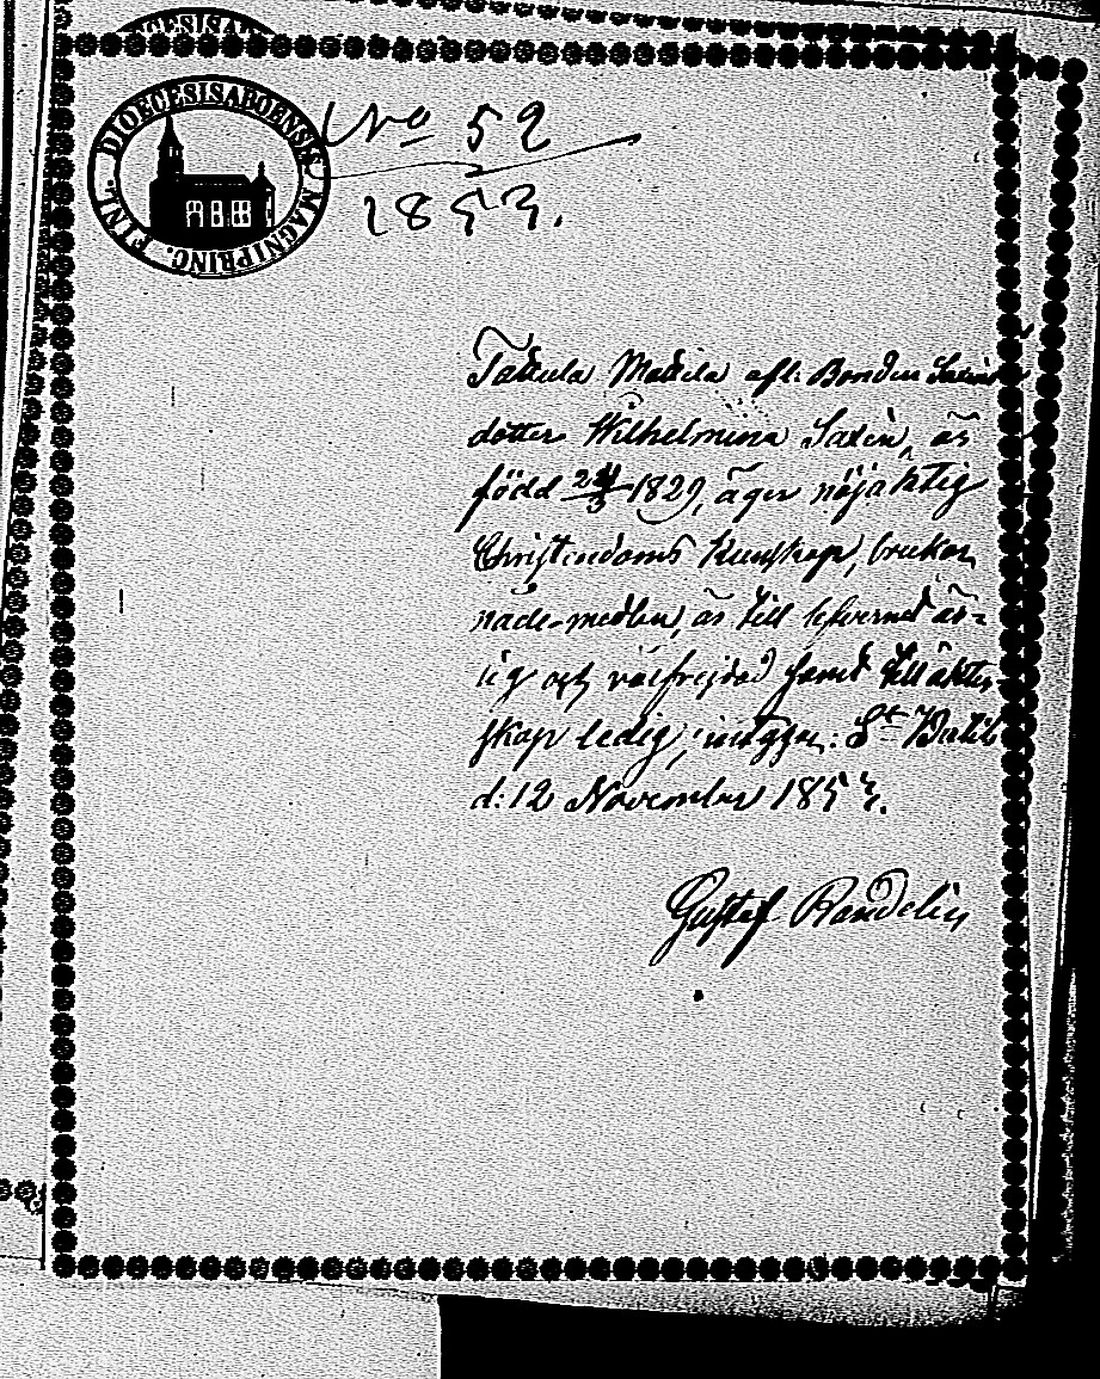 DIOECESIS ABOENSIS MAGNI PRINC. FINL.
No 52
1853.
Tattula Mattila afl: Bonden
dotter Wilhelmina Saxen, är
född 24/3 1829, äger nöjaktig
Christendoms Kunskap, brukar
nåde-medlen, är till lefvernet är-
lig och välfrejdad samt till äkten-
skap ledig; intygar: St
d: 12 November 1853.
Gustaf Randelin